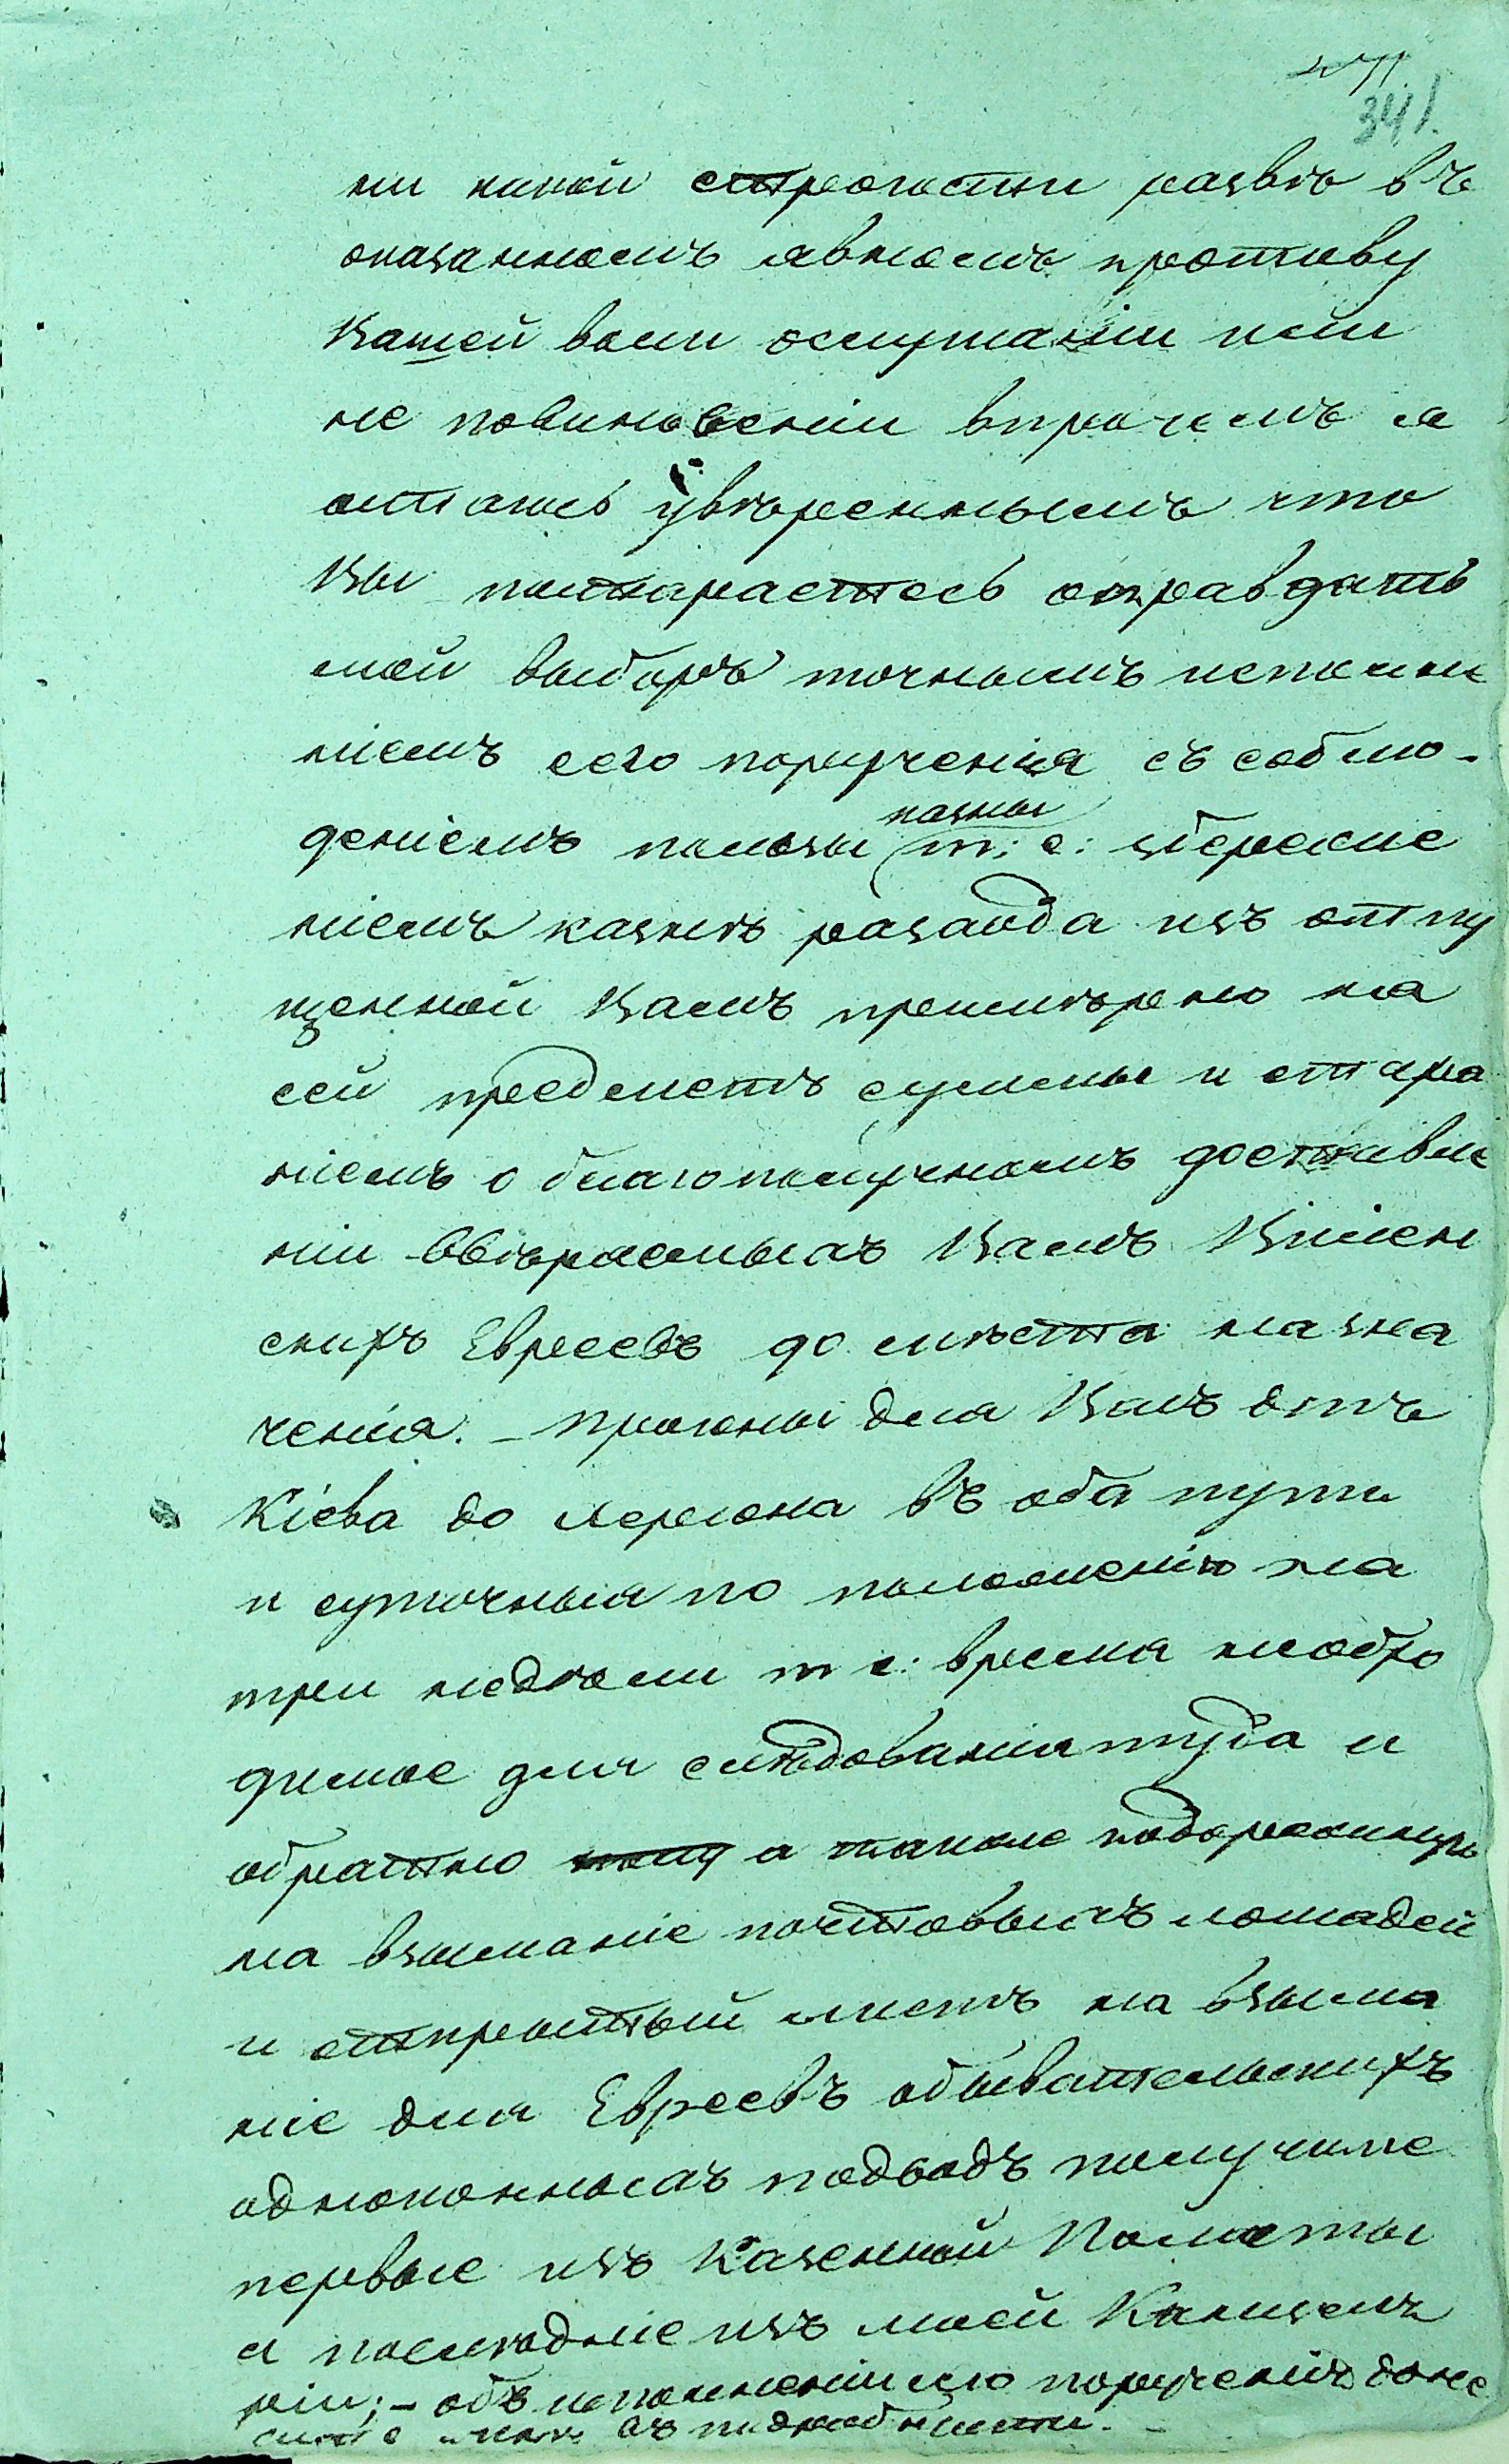 341.
ни какой строгости развѣ въ
оказанномъ явномъ противу
Вашей воли ослушаніи или
не повиновеніи впрочемъ я
остаюсь увѣреннымъ что
Вы постараетесь оправдать
мой выборъ точнымъ исполне
ніемъ сего порученія съ соблю-
деніемъ пользы казны т: е: збереже
ніемъ казнѣ расхода изъ отпу
щенной Вамъ примѣрно на
сей предметъ суммы и стара
ніемъ о благополучномъ доставле
ніи ввѣряемыхъ Вамъ Вилен
скихъ Евреевъ до мѣста назна
ченія. – прогоны для Васъ отъ
Кіева до Херсона въ оба пути
и суточныя по положенію на
три недѣли т е: время необхо
димое для слѣдованія туда и
обратно а также подорожную
на взиманіе почтовыхъ лошадей
и открытый листъ на взима
ніе для Евреевъ обывательскихъ
одноконныхъ подводъ получите
первые изъ Казенной Палаты
а послѣдніе изъ моей Канцеля
ріи; – объ исполненіи сего порученія доне
сите мнѣ въ подробности. –